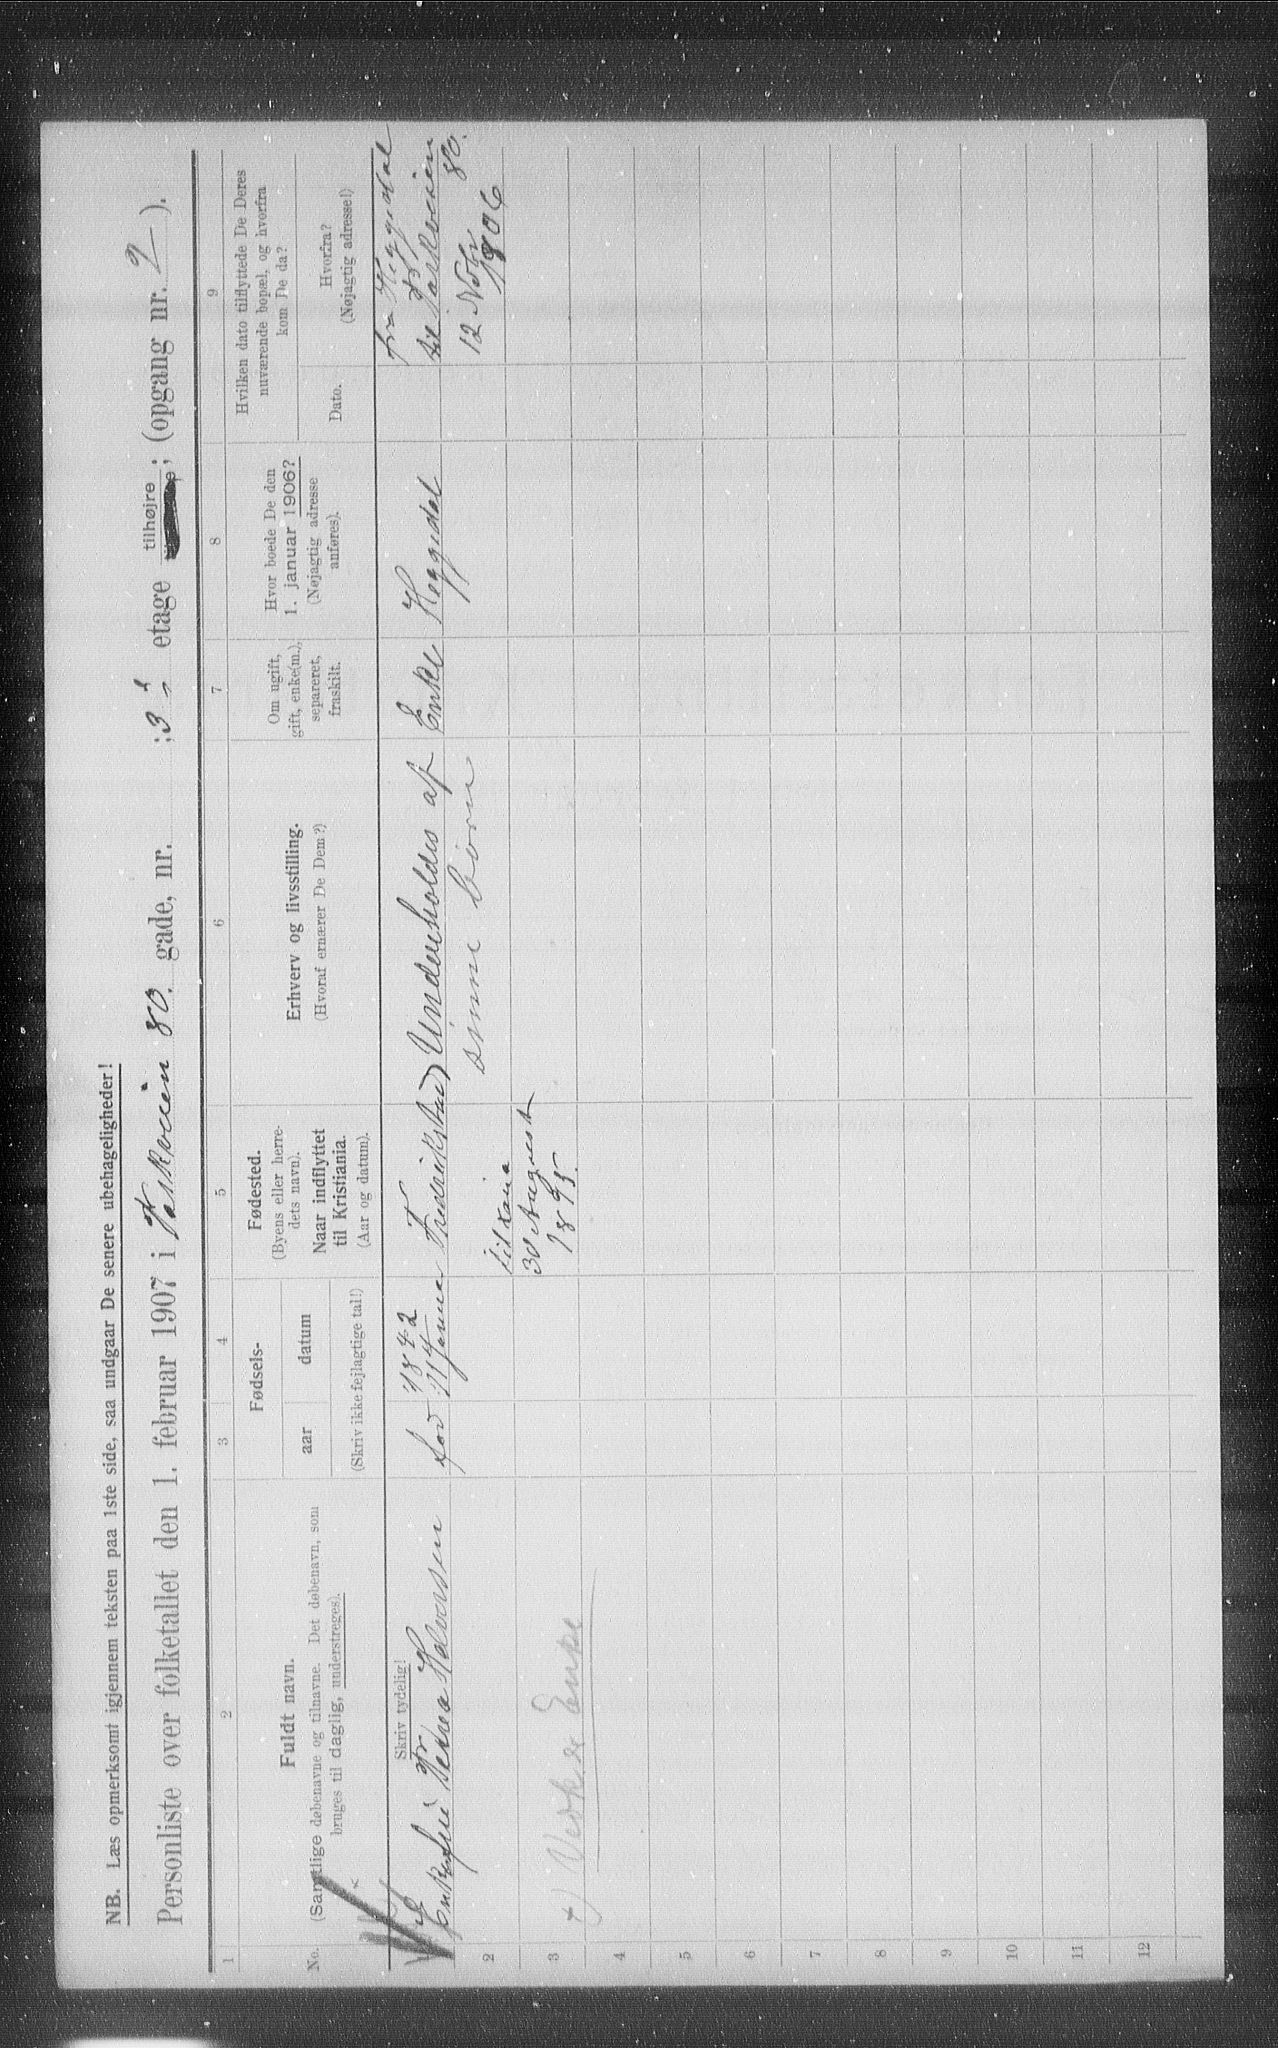 NB. Læs opmerksomt igjennem teksten paa 1ste side, saa undgaar De senere ubehageligheder!
Personliste over folketallet den 1. februar 1907 i Parkveien 80. gade, nr. ; 3 etage tilhøjre; (opgang nr. 2).
1 2 3 4 5 6 7 8 9
No.
Fuldt navn.
(Samtlige døbenavne og tilnavne. Det døbenavn, som
bruges til daglig, understreges).
Skriv tydelig!
Fødsels-
aar datum
(Skriv ikke fejlagtige tal!)
Fødested.
(Byens eller herre-
dets navn).
Naar indflyttet
til Kristiania.
(Aar og datum).
Erhverv og livsstilling.
(Hvoraf ernærer De Dem?)
Om ugift,
gift, enke(m.),
separeret,
fraskilt.
Hvor boede De den
1. januar 1906?
(Nøjagtig adresse
anføres).
Hvilken dato tilflyttede De Deres
nuværende bopæl, og hvorfra
kom De da?
Dato.
Hvorfra?
(Nøjagtig adresse!)
Enkefru Halvorsen
født 1842
Januar
Fredrikstad
til Kania
30 August
1895
Underholdes af
sinne børn
Enke
Heggedal
fra Heggedal
til Parkveien
80.
12 Nobr
1906
2
3
x) Enke
4
5
6
7
8
9
10
11
12